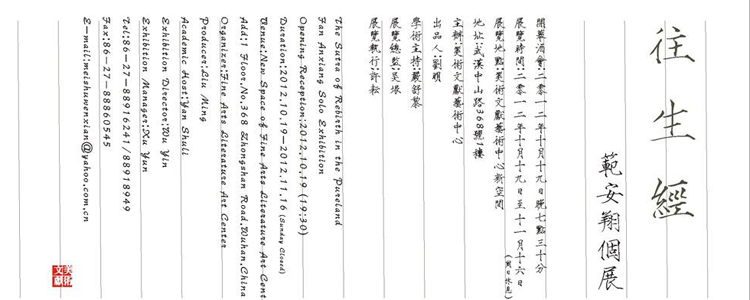 往生經
範安翔個展
開幕酒會:二零一二年十月十九日晚七點三十分
展覽時間:二零一二年十月十九日至十一月十六日
(周日休息)
展覽地點:美術文獻藝術中心新空間
地址:武漢中山路368號1樓
主辦:美術文獻藝術中心
出品人:劉明
學術主持:嚴舒黎
展覽總監:吴垠
展覽執行:許耘
The Sutra of Rebirth in the Pureland
Fan Anxiang Solo Exhibition
Opening Reception:2012.10.19 (19:30)
Duration:2012.10.19-2012.11.16 (Sunday Closed)
Venue:New Space of Fine Arts Literature Art Cent
Add:1 Floor,No.368 Zhongshan Road,Wuhan,China
Organizer:Fine Arts Literature Art Center
Producer:Liu Ming
Academic Host:Yan Shuli
Exhibition Director:Wu Yin
Exhibition Manager:Xu Yun
Tel:86-27-88916241/88918949
Fax:86-27-88860545
E-mail:meishuwenxian@yahoo.com.cn
美術
文獻